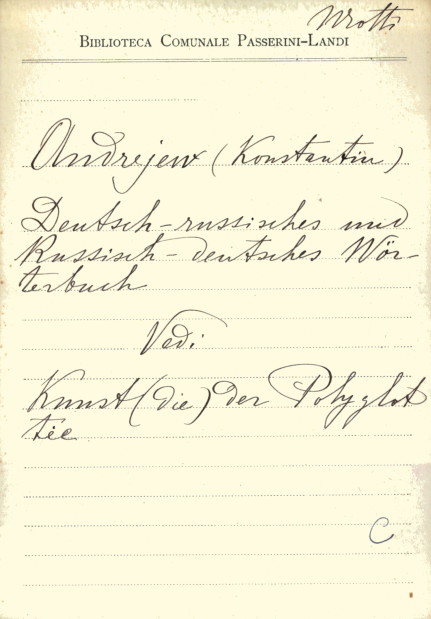 Mrotti
BIBLIOTECA COMUNALE PASSERINI-LANDI
Andrejew (Konstantin)
Deutsch-russisches und
Russisch-deutsches Wör-
terbuch
Vedi
Kunst (die) der Polyglot
tie
C